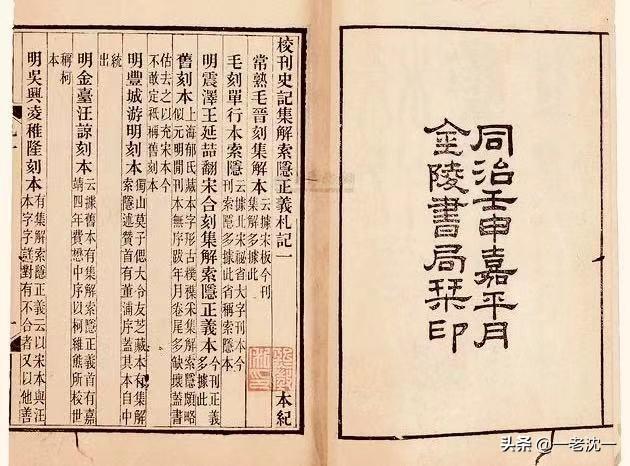 同治壬申嘉平月
金陵書局栞印
校刊史記集解索隱正義札記一
本紀
常熟毛晉刻集解本
云據宋板今刊
集解多據此
毛刻單行本索隱
云據北宋祕省大字刊本今
刊索隱多據此省稱索隱本
明震澤王延喆翻宋合刻集解索隱正義本
今刊正義
多據此
舊刻本
上海郁氏藏本字形古樸雜采集解索隱頗略
似元明閒刊本無序跋年月卷尾多缺壞蓋書
估去之以充宋本今
不敢定祗稱舊刻本
明豐城游明刻本
獨山莫子偲大令友芝藏本有集解
索隱述贊首有董浦序蓋其本自中
統
出
明金臺汪諒刻本
云據舊本有集解索隱正義首有嘉
靖四年費懋中序以柯維熊所校世
稱柯
本
明吳興凌稚隆刻本
有集解索隱正義云以宋本與汪
本字字讎對有不合者又以他善
头条 @一老沈一